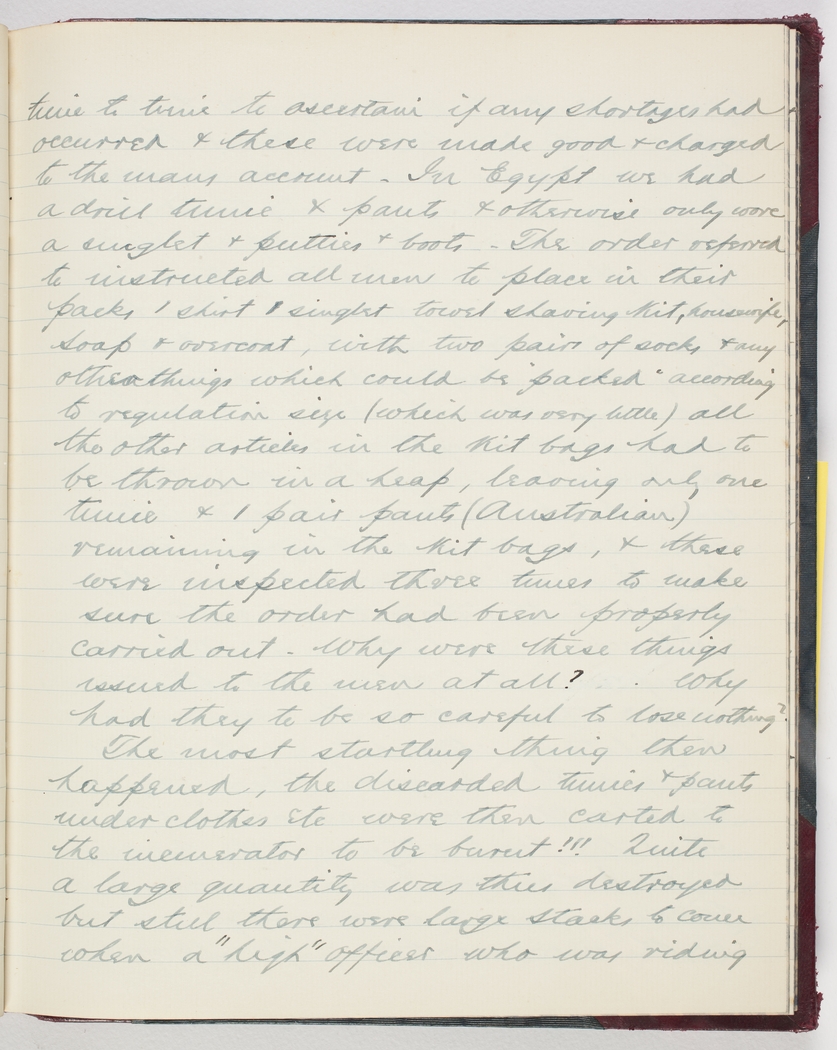 time to time to ascertain if any shortages had
occurred & these were made good & charged
to the mans account - In Egypt we had
a drill tunic & pants & otherwise only wore
a singlet & putties & boots - The order referred
to instructed all men to place in their
packs 1 shirt 1 singlet towel shaving kit, housewife,
soap & overcoat, with two pairs of socks & any
other things which could be "packed" according
to regulation size (which was very little) all
the other articles in the kit bags had to
be thrown in a heap, leaving only one
tunic & 1 pair pants (Australian)
remaining in the kit bags, & these
were inspected three times to make
sure the order had been properly
carried out - Why were these things
issued to the men at all? Why
had they to be so careful to lose nothing?
The most startling thing then
happened, the discarded tunics & pants
under clothes etc were then carted to
the incinerator to be burnt!!! Quite
a large quantity was thus destroyed
but still there were large stacks to come
when a "high" officer who was riding